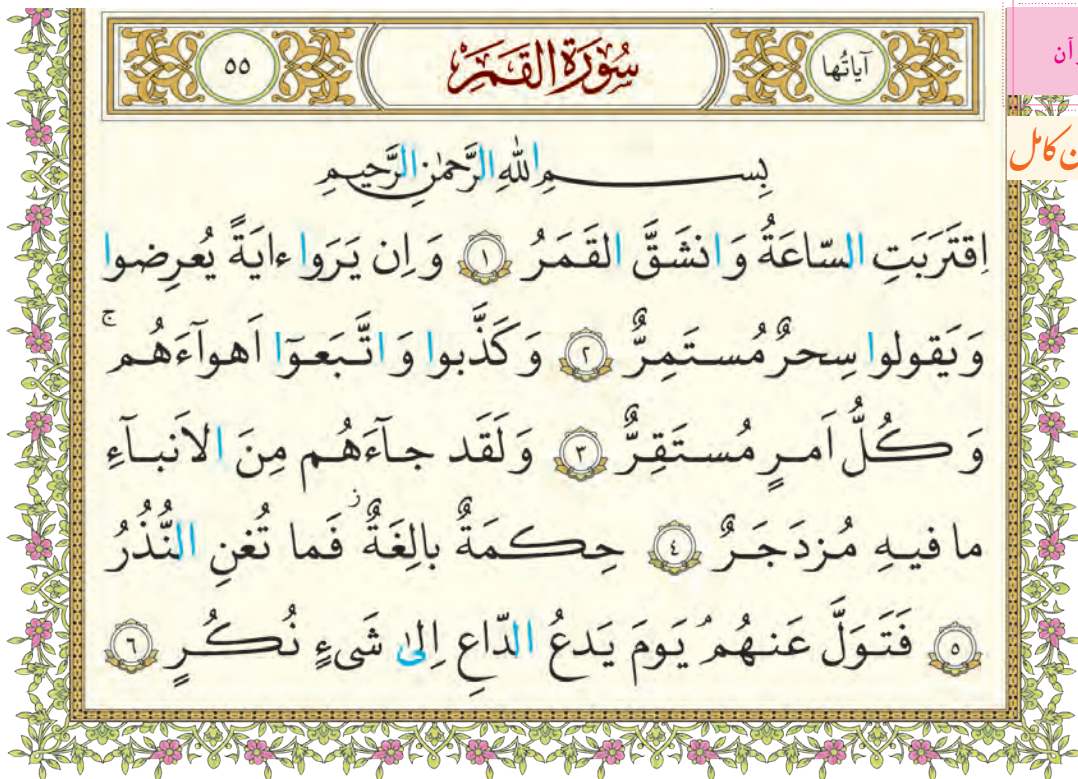 آیاتُها
سُورَةُ القَمَرِ
٥٥
رآن
ن کامل
بِسمِ اللهِ الرَّحمٰنِ الرَّحیمِ
اِقتَرَبَتِ السّاعَةُ وَ انشَقَّ القَمَرُ ١ وَ اِن یَرَوا ءایَةً یُعرِضوا
وَ یَقولوا سِحرٌ مُستَمِرٌّ ٢ وَ کَذَّبوا وَ اتَّبَعوٓا اَهوآءَهُم ۚ
وَ کُلُّ اَمرٍ مُستَقِرٌّ ٣ وَ لَقَد جآءَهُم مِنَ الاَنبآءِ
ما فیهِ مُزدَجَرٌ ٤ حِکمَةٌ بالِغَةٌ ز فَما تُغنِ النُّذُرُ
٥ فَتَوَلَّ عَنهُم یَومَ یَدعُ الدّاعِ اِلیٰ شَیءٍ نُکُرٍ ٦